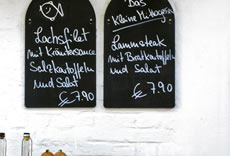 Lachsfilet
mit Kräutersauce
Salzkartoffeln
und Salat
€ 7.90
Das
Kleine
Lammsteak
mit Bratkartoffeln
und Salat
€ 7.90